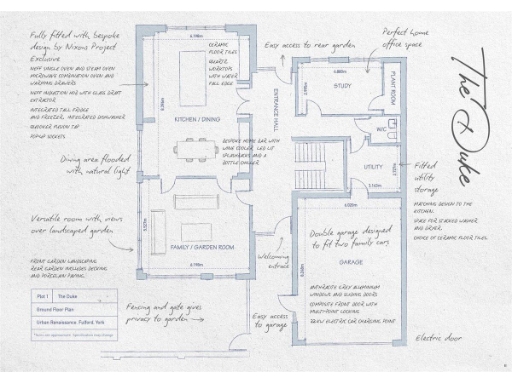 Fully fitted with bespoke
design by Nixons Project
Exclusive
NEFF SINGLE OVEN AND STEAM OVEN
MICROWAVE COMBINATION OVEN AND
WARMING DRAWERS
NEFF INDUCTION HOB WITH GLASS DRAFT
EXTRACTOR
INTEGRATED TALL FRIDGE
AND FREEZER, INTEGRATED DISHWASHER
QUOOKER FUSION TAP
POP-UP SOCKETS
Dining area flooded
with natural light
Versatile room with views
over landscaped garden
FRONT GARDEN LANDSCAPING
REAR GARDEN INCLUDES DECKING
AND PORCELAIN PAVING
Plot 1 The Duke
Ground Floor Plan
Urban Renaissance Fulford, York
CERAMIC
FLOOR TILES
QUARTZ
WORKTOPS
WITH WATER
FALL EDGE
KITCHEN / DINING
BESPOKE HOME BAR WITH
WINE COOLER, LED LIT
FAMILY / GARDEN ROOM
Easy access to rear garden
ENTRANCE HALL
STUDY
PLANT ROOM
Perfect home
office space
WC
UTILITY
Fitted
utility
storage
MATCHING DESIGN TO THE
KITCHEN.
SPACE FOR STACKED WASHER
AND DRYER.
CHOICE OF CERAMIC FLOOR TILES.
Welcoming
entrance
Double garage designed
to fit two family cars
GARAGE
ANTHRACITE GREY ALUMINIUM
WINDOWS AND SLIDING DOORS
COMPOSITE FRONT DOOR WITH
MULTI-POINT LOCKING
ELECTRIC CAR CHARGING POINT
Fencing and gate gives
privacy to garden
Easy access
to garage
Electric door
The Duke